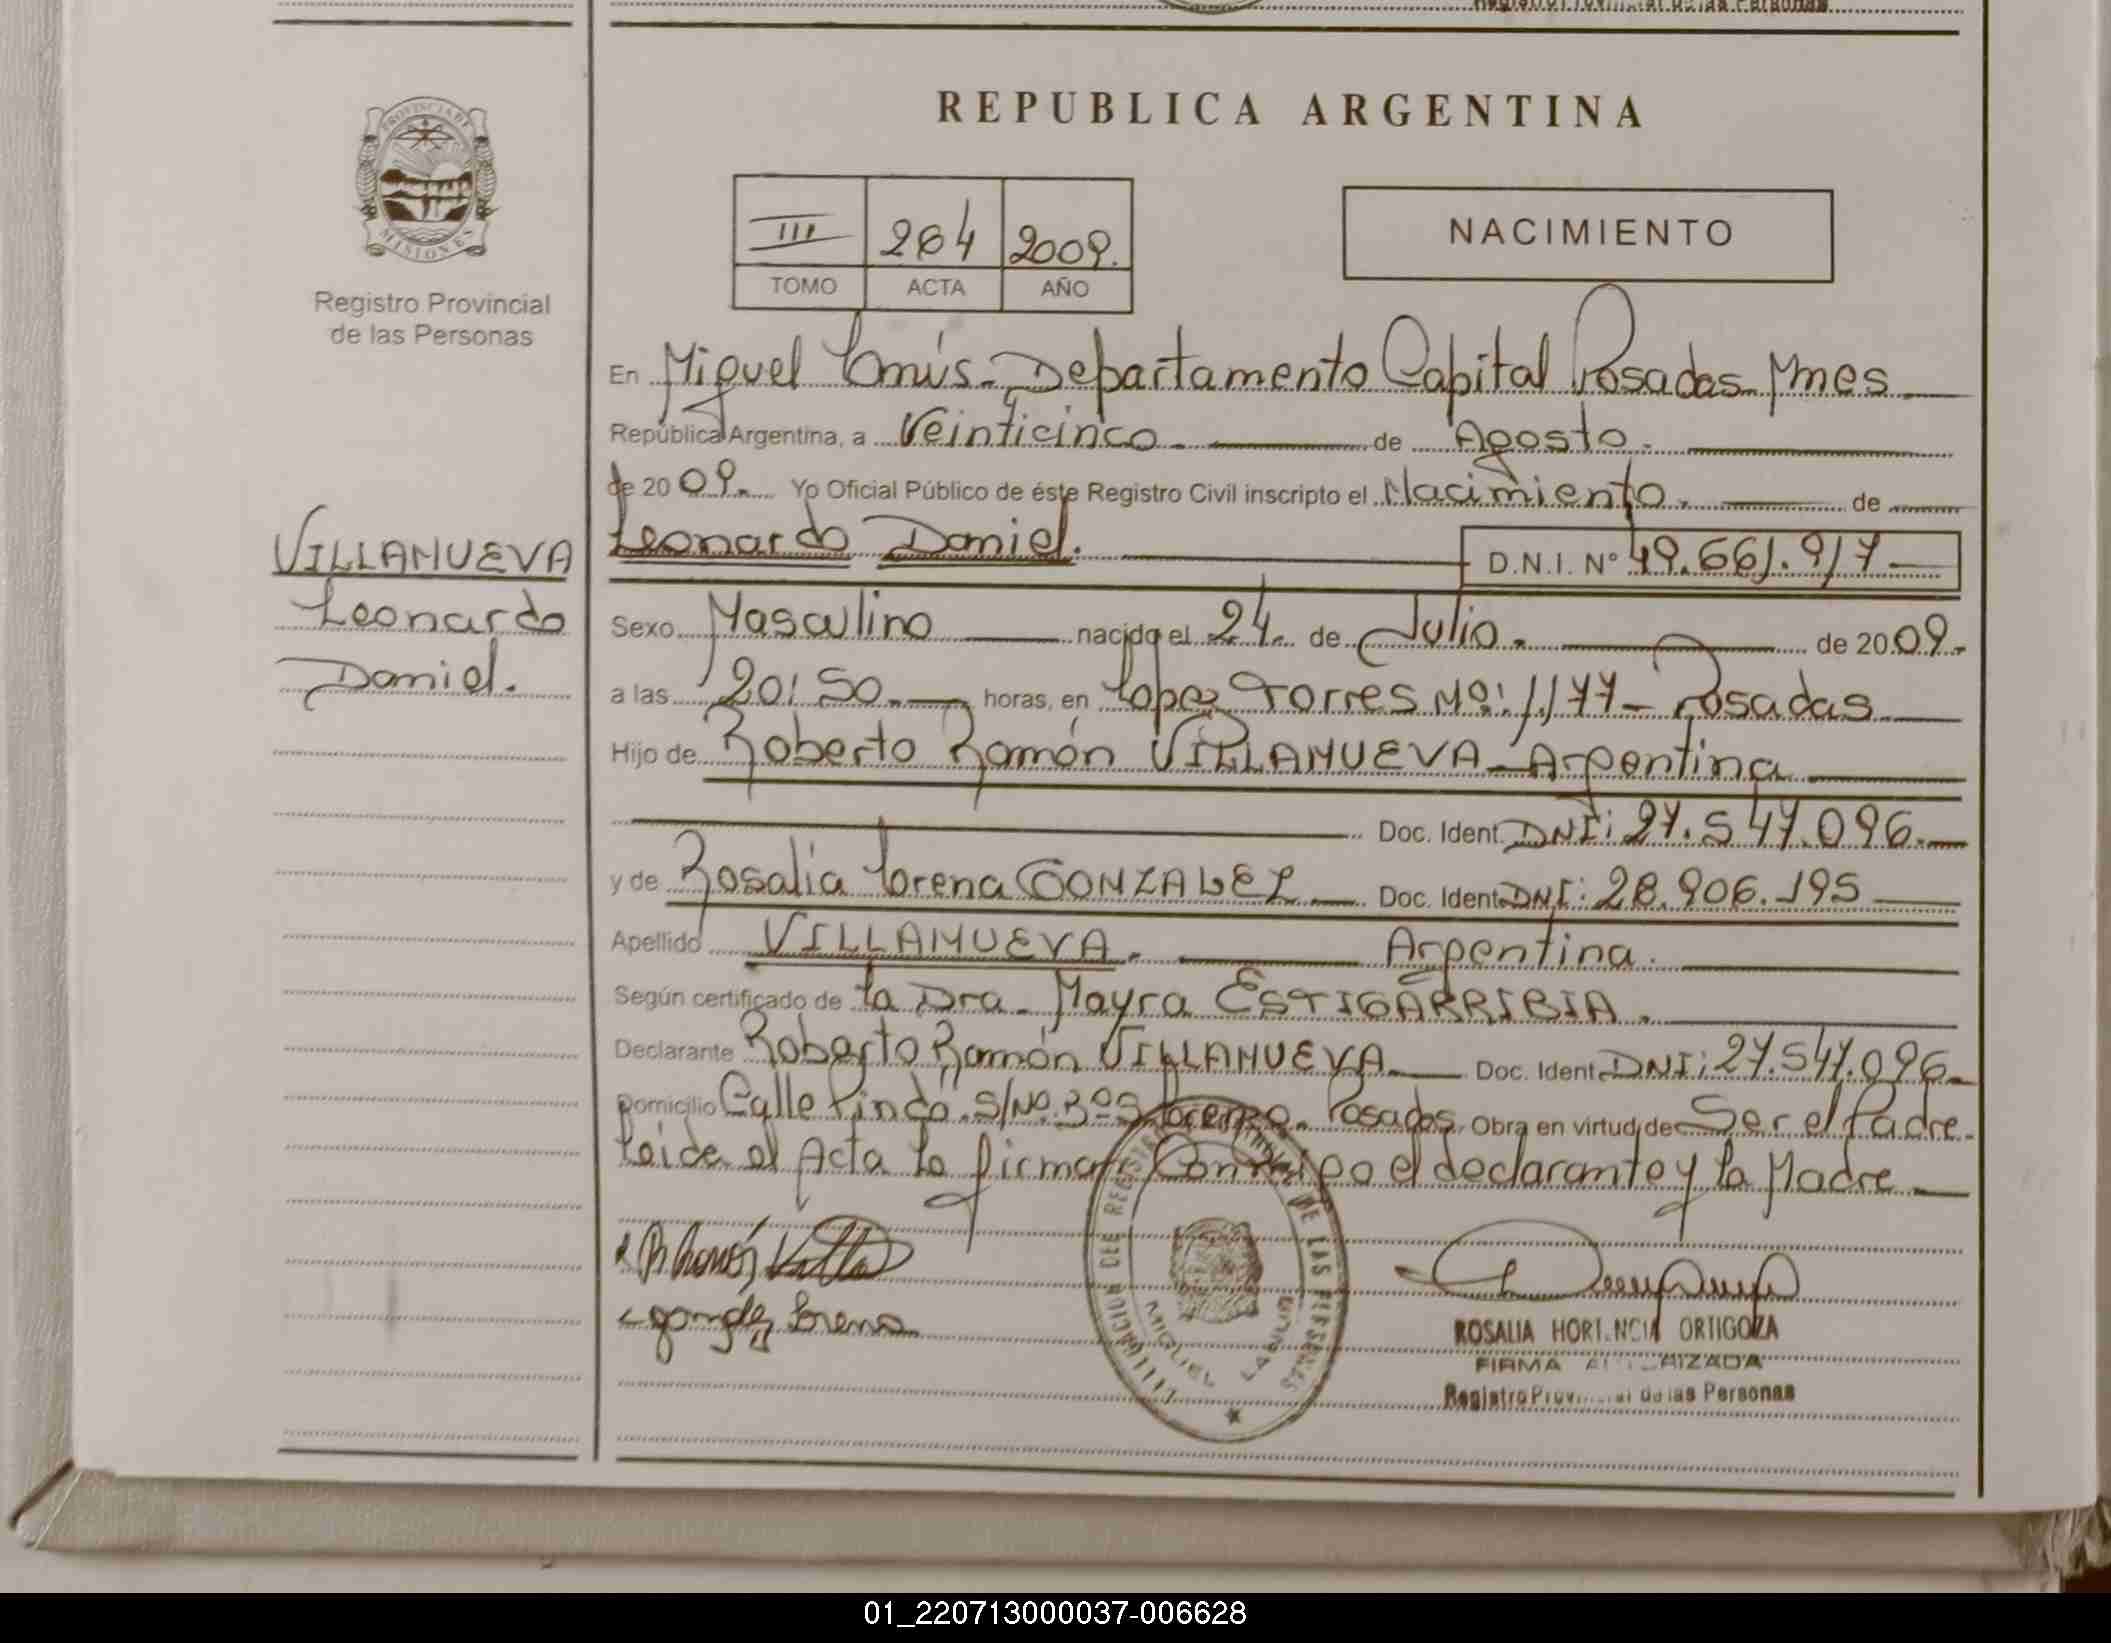 Registro Provincial de las Personas
REPUBLICA ARGENTINA
PROVINCIA DE
MISIONES
Registro Provincial
de las Personas
III 264 2009.
TOMO ACTA AÑO
NACIMIENTO
VILLANUEVA
Leonardo
Daniel.
En Miguel Lanús - Departamento Capital Posadas Mnes
República Argentina, a Veinticinco de Agosto.
de 2009. Yo Oficial Público de éste Registro Civil inscripto el Nacimiento. de
Leonardo Daniel. D.N.I. Nº 49.661.917
Sexo Masculino nacido el 24 de Julio. de 2009.
a las 20:50 horas, en Lopez Torres Nº: 1177 - Posadas
Hijo de Roberto Ramón VILLANUEVA - Argentina
Doc. Ident. DNI: 27.547.096.
y de Rosalia Lorena GONZALEZ Doc. Ident. DNI: 28.906.195
Apellido VILLANUEVA. Argentina.
Según certificado de La Dra. Mayra ESTIGARRIBIA.
Declarante Roberto Ramón VILLANUEVA Doc. Ident. DNI: 27.547.096
Domicilio Calle Pindó S/Nº Bº S. Lorenzo. Posadas Obra en virtud de Ser el Padre.
Leida el Acta la firman Conmigo el declarante y la Madre
Gonzalez Lorena
DE LAS PERSONAS
MIGUEL LANUS
ROSALIA HORTENCIA ORTIGOZA
FIRMA AUTORIZADA
Registro Provincial de las Personas
01_220713000037-006628